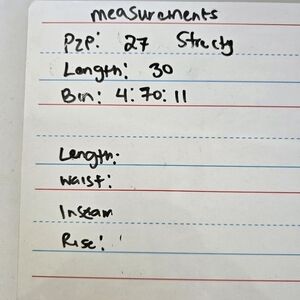 measurements
P2P: 27
Length: 30
Bin: 4:70:11
Length:
waist:
Inseam
Rise: